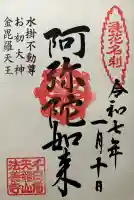 浪花名刹
令和七年
一月十日
阿弥陀如来
水掛不動尊
お初大神
金毘羅天王
千日前
天龍山
法善寺